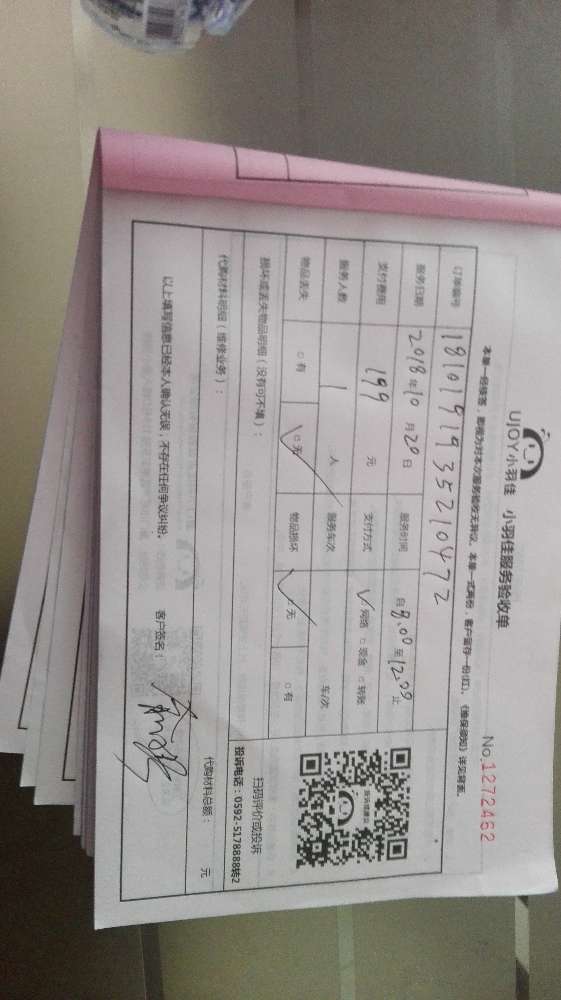 UJOY小羽佳 小羽佳服务验收单
No.1272462
本单一经接签，即视为对本次服务验收无异议。本单一式两份，客户留存一份(红)，《维保须知》详见背面。
订单编号 1810191935210472
服务日期 2018年10月20日 服务时间 自8:00至12:00止
支付费用 199 元 支付方式 ☑网络 □现金 □转账
服务人数 1 人 服务车次 车/次
物品丢失 □有 ☑无 物品损坏 ☑无 □有
损坏或丢失物品明细（没有可不填）：
扫码评价或投诉
投诉电话：0592-5178888转2
代购材料明细（维修业务）：
代购材料总额： 元
以上填写信息已经本人确认无误，不存在任何争议纠纷。 客户签名：